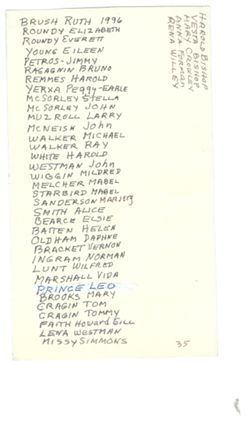 BRUSH RUTH 1996
ROUNDY ELIZABETH
ROUNDY EVERETT
YOUNG EILEEN
PETROS-JIMMY
RAGAGNIN BRUNO
REMMES HAROLD
YERXA PEGGY-EARLE
MCSORLEY STELLA
MCSORLEY JOHN
MUZROLL LARRY
MCNEISH JOHN
WALKER MICHAEL
WALKER RAY
WHITE HAROLD
WESTMAN John
WIGGIN MILDRED
MELCHER MABEL
STARBIRD MABEL
SANDERSON MARIETTJ
SMITH ALICE
BEARCE ELSIE
BATTEN HELEN
OLDHAM DAPHNE
BRACKET VERNON
INGRAM NORMAN
LUNT WILFRED
MARSHALL VIDA
PRINCE LEO
BROOKS MARY
CRAGIN TOM
CRAGIN TOMMY
FAITH HOWARD GILL
LENA WESTMAN
MISSY SIMMONS
35
HAROLD BISHOP
VESTA BISHOP
MARY CROWLEY
ANNA FARLEY
RENA WILLEY